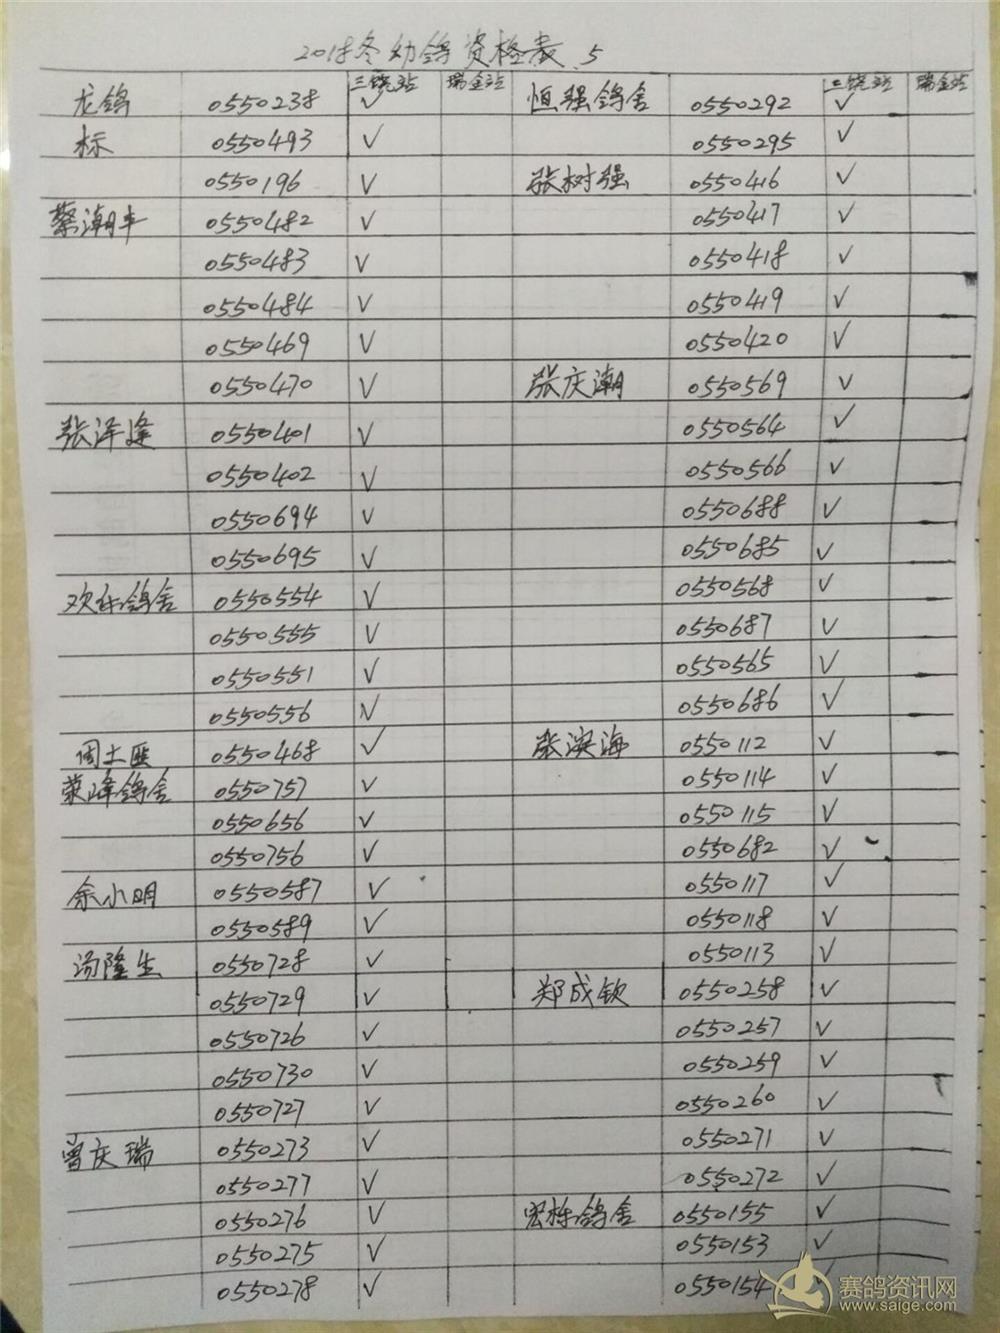 2018冬幼鸽资格表.5
三饶站 瑞金站 三饶站 瑞金站
龙鸽 0550238 ✓ 恒强鸽舍 0550292 ✓
标 0550493 ✓ 0550295 ✓
0550196 ✓ 张树强 0550416 ✓
蔡潮丰 0550482 ✓ 0550417 ✓
0550483 ✓ 0550418 ✓
0550484 ✓ 0550419 ✓
0550469 ✓ 0550420 ✓
0550470 ✓ 张庆潮 0550569 ✓
张泽逢 0550401 ✓ 0550564 ✓
0550402 ✓ 0550566 ✓
0550694 ✓ 0550688 ✓
0550695 ✓ 0550685 ✓
欢乐鸽舍 0550554 ✓ 0550568 ✓
0550555 ✓ 0550687 ✓
0550551 ✓ 0550565 ✓
0550556 ✓ 0550686 ✓
周土匪 0550468 ✓ 张滨海 0550112 ✓
荣峰鸽舍 0550757 ✓ 0550114 ✓
0550656 ✓ 0550115 ✓
0550756 ✓ 0550682 ✓
余小明 0550587 ✓ 0550117 ✓
0550589 ✓ 0550118 ✓
汤隆生 0550728 ✓ 0550113 ✓
0550729 ✓ 郑成钦 0550258 ✓
0550726 ✓ 0550257 ✓
0550730 ✓ 0550259 ✓
0550727 ✓ 0550260 ✓
曾庆瑞 0550273 ✓ 0550271 ✓
0550277 ✓ 0550272 ✓
0550276 ✓ 宏栋鸽舍 0550155 ✓
0550275 ✓ 0550153 ✓
0550278 ✓ 0550154 ✓
赛鸽资讯网
www.saige.com